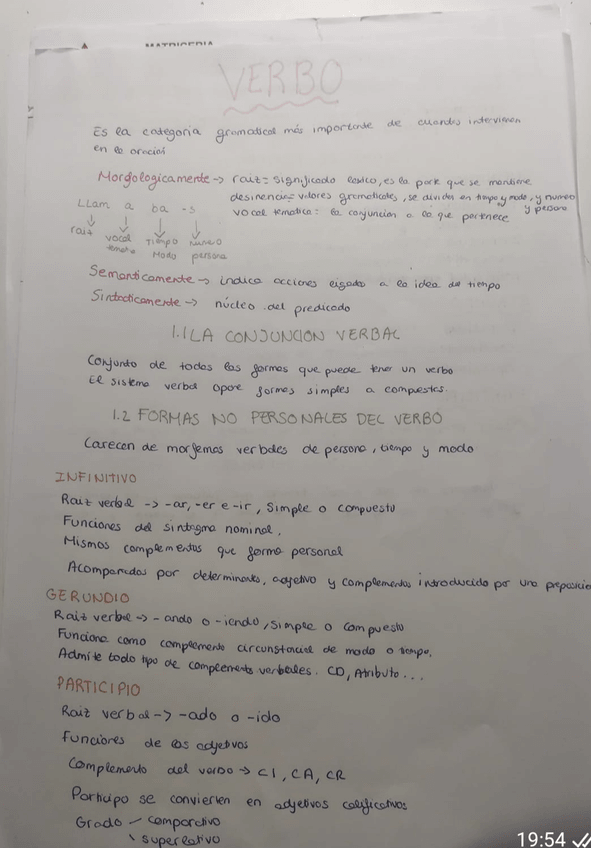 VERBO
Es la categoria gramatical más importante de cuantas intervienen
en la oración
Morfologicamente -> raiz = significado lexico, es la parte que se mantiene
desinencias = valores gramaticales, se dividen en tiempo y modo, y numero y persona
vocal tematica: la conjuncion a la que pertenece
Llam a ba -s
raiz vocal tematica Tiempo Modo Numero persona
Semanticamente -> indica acciones ligado a la idea de tiempo
Sintacticamente -> núcleo del predicado
1.1 LA CONJUNCION VERBAL
Conjunto de todas las formas que puede tener un verbo
El sistema verbal opone formas simples a compuestas.
1.2 FORMAS NO PERSONALES DEL VERBO
Carecen de morfemas verbales de persona, tiempo y modo
INFINITIVO
Raiz verbal -> -ar, -er e -ir, simple o compuesto
Funciones del sintagma nominal.
Mismos complementos que forma personal
Acompañados por determinante, adjetivo y complementos introducido por una preposicion
GERUNDIO
Raiz verbal -> -ando o -iendo, simple o compuesto
Funciona como complemento circunstancial de modo o tiempo.
Admite todo tipo de complements verbales. CD, Atributo...
PARTICIPIO
Raiz verbal -> -ado o -ido
Funciones de los adjetivos
Complemento del verbo -> C1, CA, CR
Participo se convierten en adjetivos calificativos
Grado - comparativo
\ superlativo
19:54